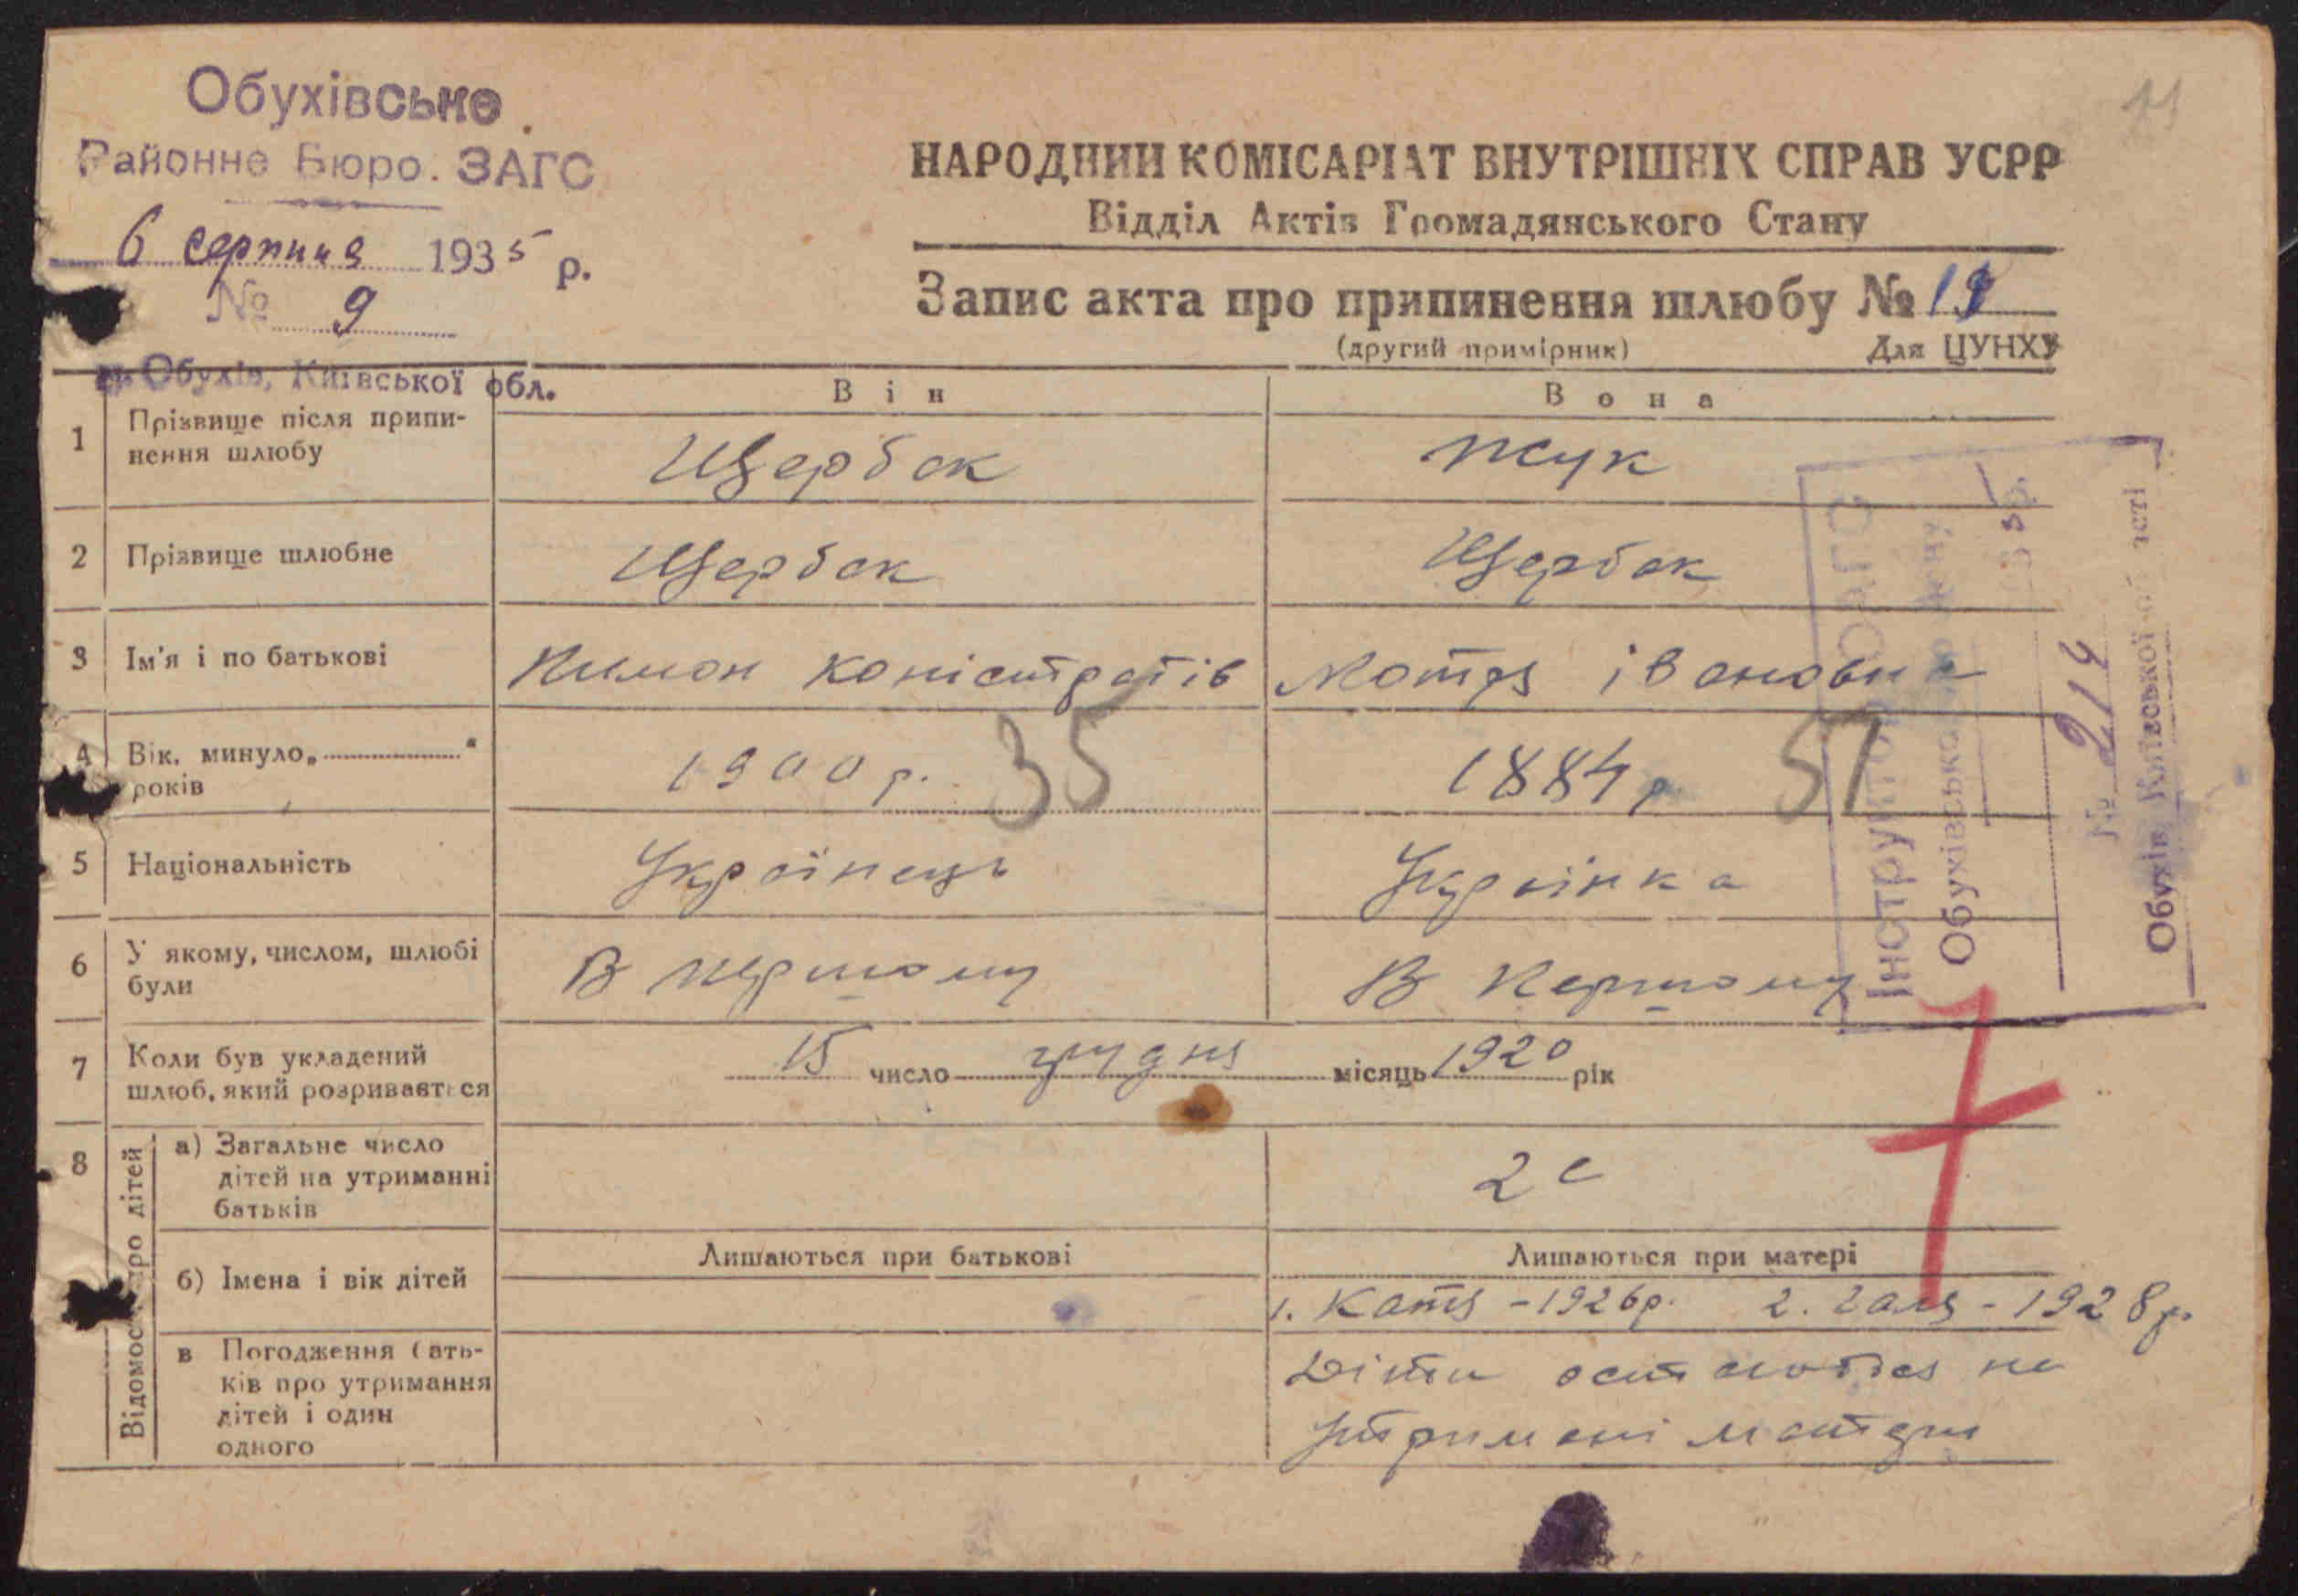 11
Обухівське
Районне Бюро. ЗАГС
6 серпня 1935 р.
№ 9
Обухів, Київської обл.
НАРОДНИЙ КОМІСАРІАТ ВНУТРІШНІХ СПРАВ УСРР
Відділ Актів Громадянського Стану
Запис акта про припинення шлюбу № 19
(другий примірник) Для ЦУНХУ
Він Вона
1 Прізвище після припи-
нення шлюбу Щербак Жук
2 Прізвище шлюбне Щербак Щербак
3 Ім'я і по батькові Пимон Каністратів Мотря івановна
4 Вік. минуло „ “
років 1900 р. 35 1884 р. 51
5 Національність Українець Українка
6 У якому, числом, шлюбі
були В першому В першому
7 Коли був укладений
шлюб, який розривається 15 число грудня місяць 1920 рік
8 Відомості про дітей
а) Загальне число
дітей на утриманні
батьків 2є
Лишаються при батькові Лишаються при матері
б) Імена і вік дітей 1. Катя - 1926р. 2. Галя - 1928р.
в Погодження бать-
ків про утримання
дітей і один
одного
Діти остаються на
утримані матери
Інструктор ОАГС
Обухівського
№ 214
Обухів, Київської